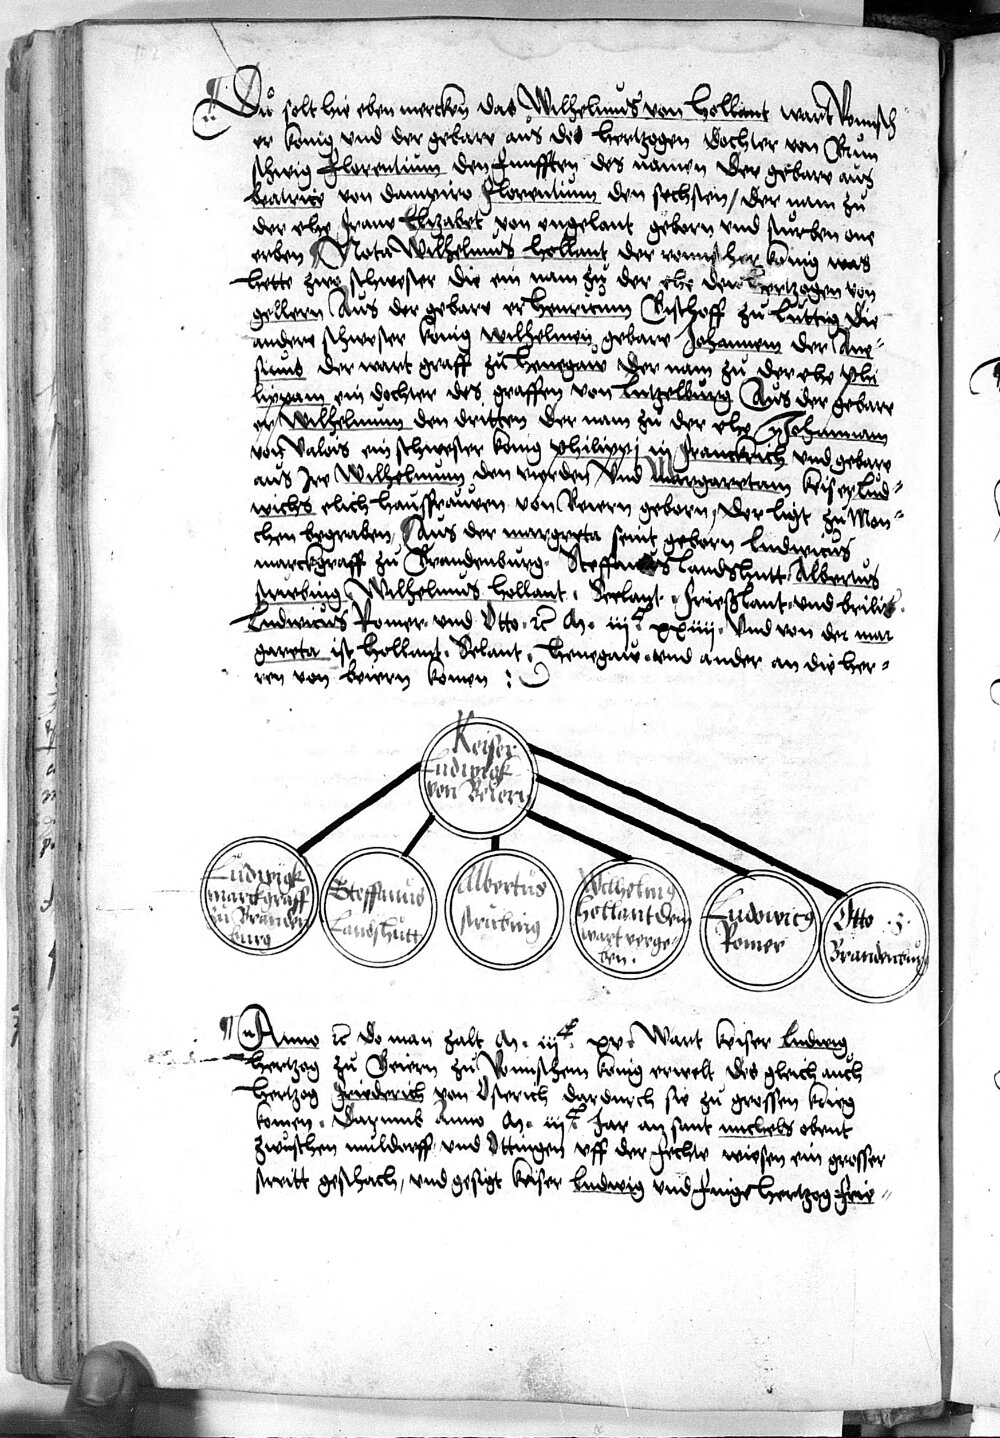 Du solt hie eben mercken das Wilhelmus von Hollant wart Romisch
er konig vnd der gebare aus des hertzogen dochter von Brun
schwig Florentium den funfften des namen Der gebare aus
beatrice von dampiro Florentium den sechsten / der nam zu
der ehe frauw Elizabet von engelant geborn vnd sturben one
erben Nota Wilhelmus hollant der romischer konig was
hette zwo schwester die ein nam zu der ehe der hertzogen von
gellern Aus der gebare er henricum Bischoff zu luttig die
ander schwester konig wilhelmen gebare Johannem der Ane-
sinus der wart graff zu henegaw der nam zu der ehe phi
lippam ein dochter des graffen von lutzelburg Aus der gebare
er wilhelmum den dritten der nam zu der ehe Johannam
von valois ein schwester konig philippi in franckrich vnd gebare
aus Ire wilhelmum den vierden vnd Margaretam keiser lud-
wichs elich hausfrauwen von Beiern geborn, der ligt zu Mon-
chen begraben, Aus der margreta seint geborn ludwicus
marckgraff zu Brandenburg. Steffanus landshutt. Albertus
strubing. Wilhelmus hollant. Seelant. frießlant. vnd
Ludwicus Romer. vnd Otto. ꝛc M. iijc xxiiij. Vnd von der mar
gareta ist hollant. Selant. henegaw. vnd ander an die her-
ren von beiern komen :
Keiser
Ludwigk
von Beiern
Ludwigk
marckgraff
zu Branden
burg
Steffanus
Landshutt
Albertus
strubing
Wilhelmus
hollant dem
wart verge-
ben.
Ludowicus
Romer
Otto .3.
Brandenburg
Anno ꝛc do man zalt M. iijc. xv. Wart keiser Ludwig
hertzog zu Beiern zu Romischem konig erwelt des gleich auch
hertzog friederich von Osterich dardurch sie zu grossen krieg
komen. Darnach Anno M. iijc Jar an sant michels obent
zwuschen muldorff vnd Ottingen vff der fechte wiesen ein grosser
stritt geschach, vnd gesigt keiser Ludwig vnd hertzog frie-